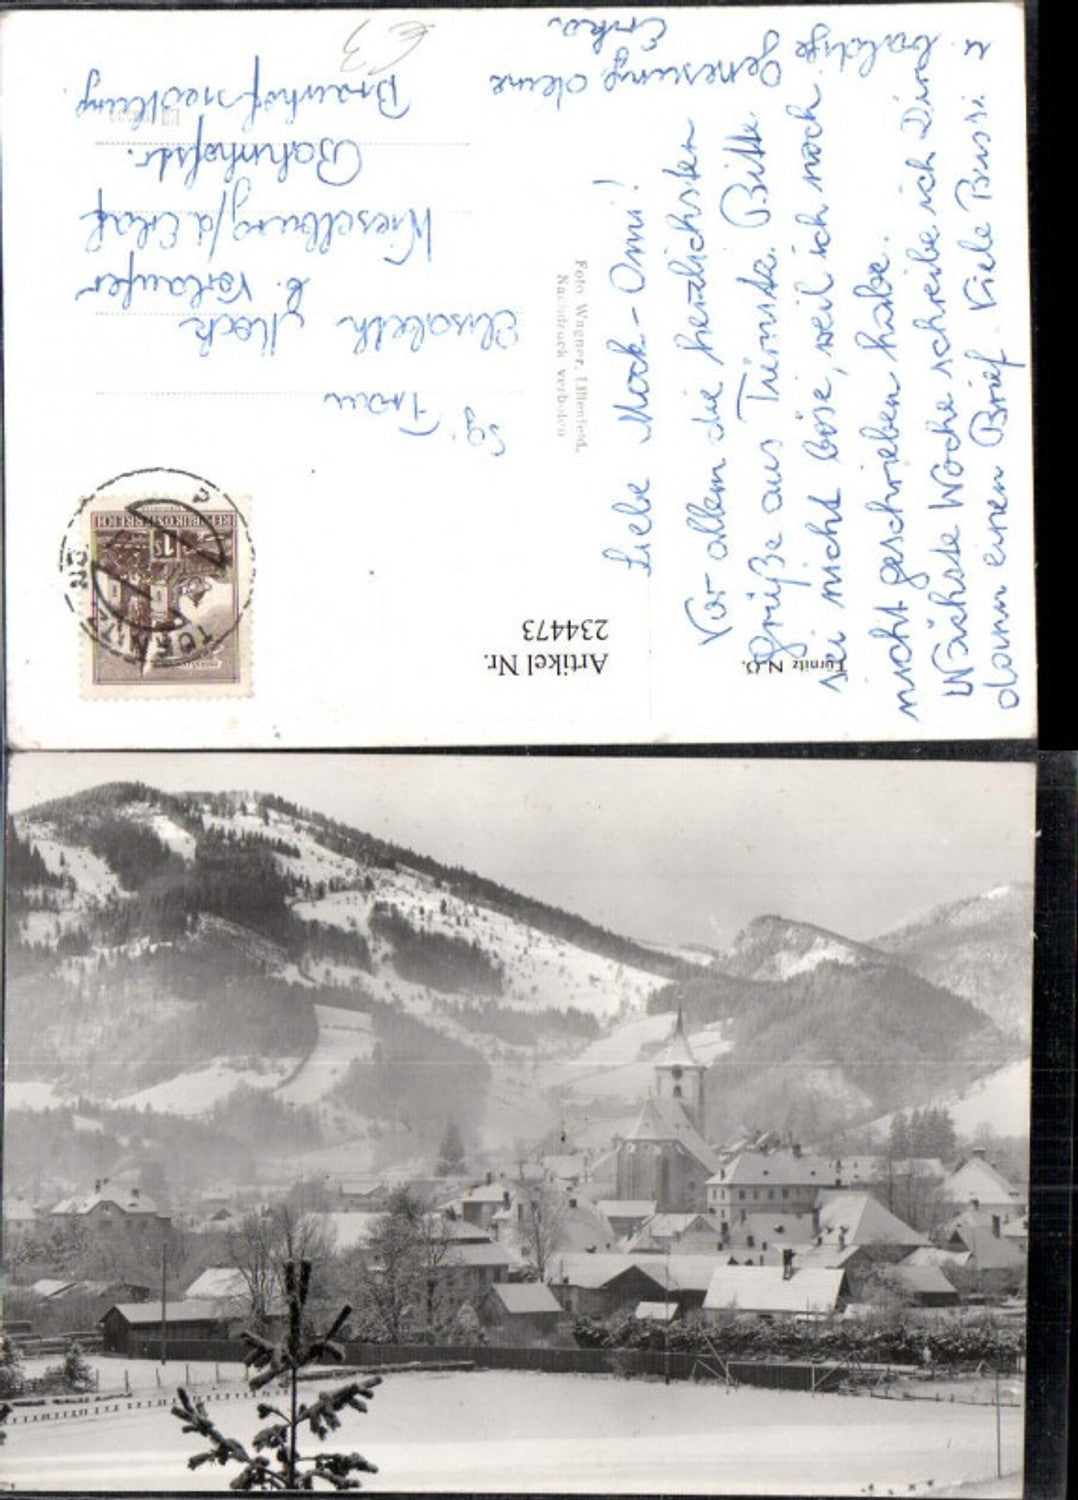 Liebe Mock-Omi!
Vor allem die herzlichsten
Grüße aus Türnitz. Bitte
sei nicht böse, weil ich noch
nicht geschrieben habe.
Nächste Woche schreibe ich Dir
dann einen Brief. Viele Bussi u
u. baldige Genesung deine
Türnitz N.Ö.
Foto Wagner, Lilienfeld.
Nachdruck verboten
Frau
Elisabeth Mock
Wieselburg/a. Erlauf
Bahnhofstr.
€3
Artikel Nr.
234473
REPUBLIK ÖSTERREICH
1 S
TÜRNITZ NÖ